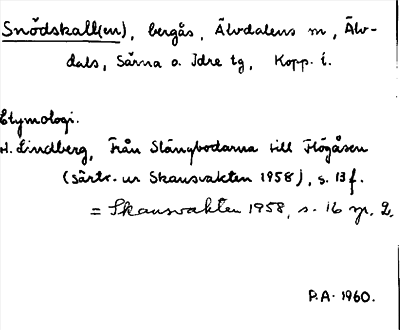 Snödskall(en), bergås, Älvdalens m, Älv-
dals, Särna o. Idre tg, Kopp. l.
Etymologi.
H. Lindberg, Från Stångbodarna till Högåsen
(särtr. ur Skansvakten 1958), s. 13 f.
= Skansvakten 1958, s. 16 sp. 2.
P.A. 1960.